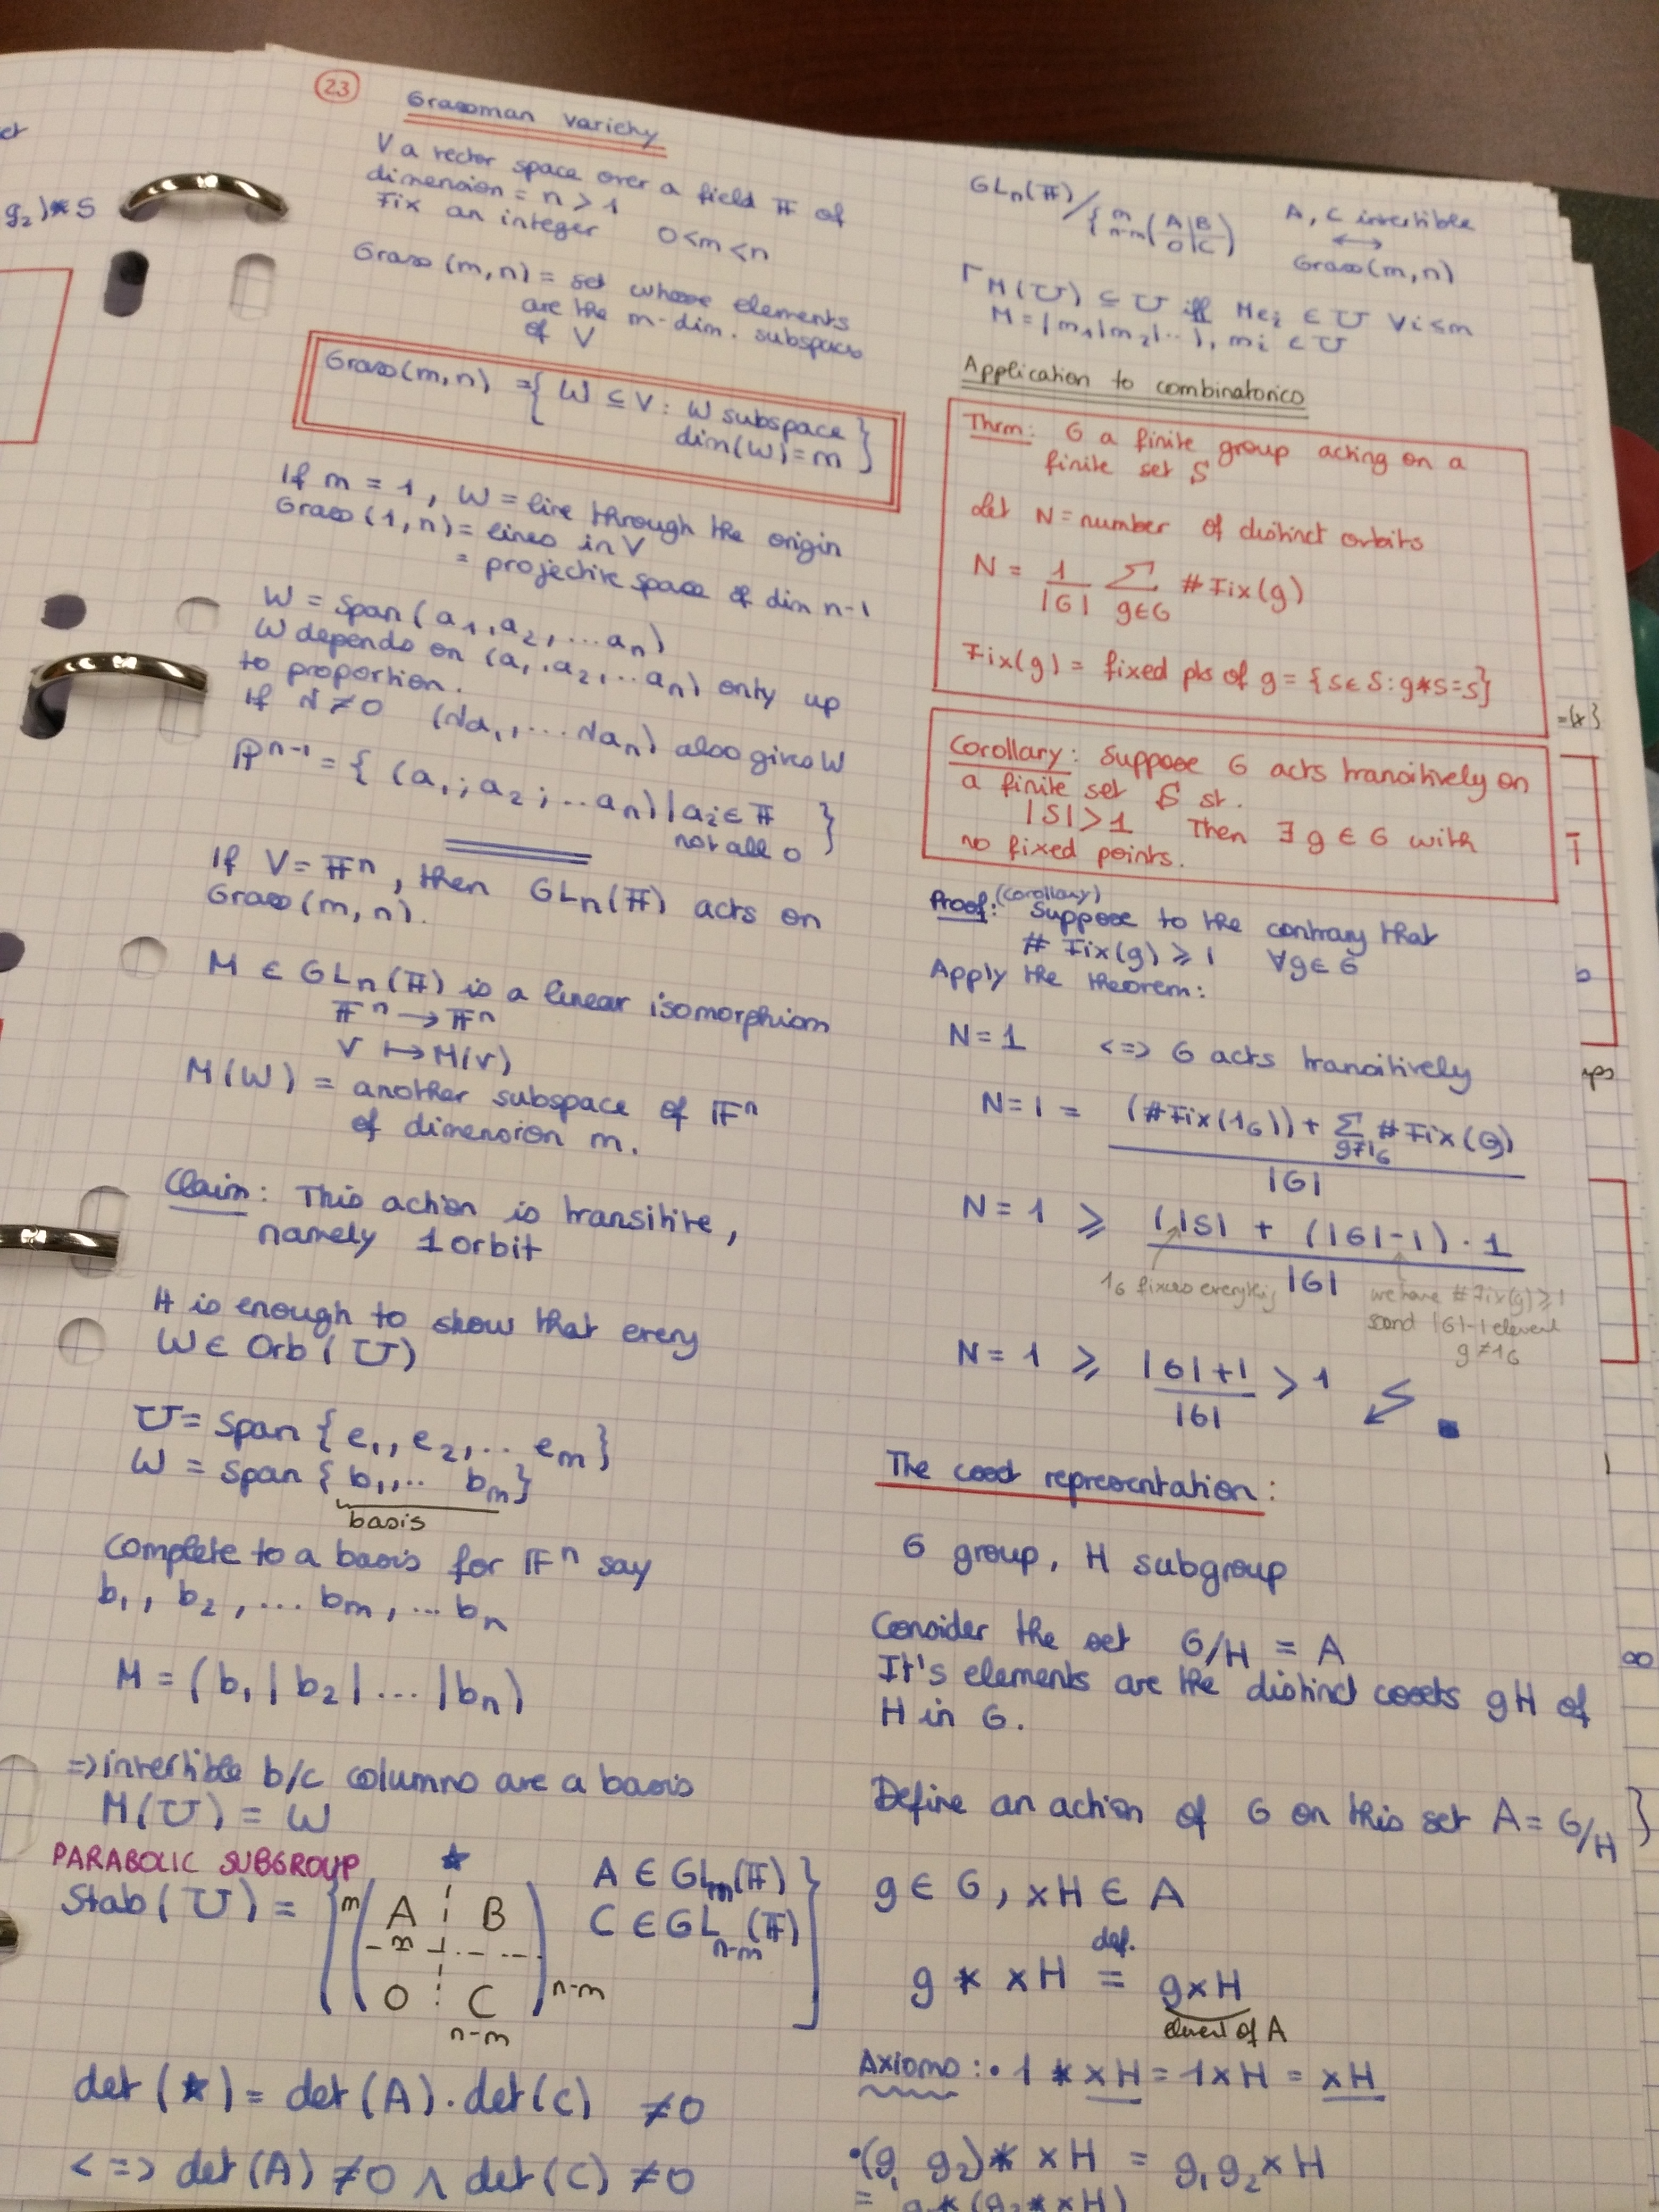 23
Grassman Variety
V a vector space over a field 𝔽 of
dimension = n > 1
Fix an integer 0<m<n
Grass (m,n) = set whose elements
are the m-dim. subspaces
of V
Grass(m,n) = { W ⊆ V : W subspace
dim(W)=m }
If m = 1, W = line through the origin
Grass (1,n) = lines in V
= projective space of dim n-1
W = Span (a₁, a₂, ... aₙ)
W depends on (a₁, a₂, ... aₙ) only up
to proportion.
If λ ≠ 0 (λa₁, ... λaₙ) also gives W
ℙⁿ⁻¹ = { (a₁; a₂; .. aₙ) | aᵢ ∈ 𝔽
not all 0 }
If V = 𝔽ⁿ, then GLₙ(𝔽) acts on
Grass (m,n).
M ∈ GLₙ(𝔽) is a linear isomorphism
𝔽ⁿ → 𝔽ⁿ
v ↦ M(v)
M(W) = another subspace of 𝔽ⁿ
of dimension m.
Claim: This action is transitive,
namely 1 orbit
It is enough to show that every
W ∈ Orb (U)
U = Span { e₁, e₂, .. eₘ }
W = Span { b₁, .. bₘ }
basis
Complete to a basis for 𝔽ⁿ say
b₁, b₂, ... bₘ, ... bₙ
M = ( b₁ | b₂ | ... | bₙ )
=> invertible b/c columns are a basis
M(U) = W
PARABOLIC SUBGROUP ★
Stab (U) = { m ( A ¦ B ) A ∈ GLₘ(𝔽)
m
( 0 ¦ C ) n-m C ∈ GLₙ₋ₘ(𝔽) }
n-m
det (★) = det (A) · det (C) ≠ 0
<=> det (A) ≠ 0 ∧ det (C) ≠ 0
GLₙ(𝔽) / { m n-m ( A | B / 0 | C ) A, C invertible
↔
Grass (m,n)
Γ M(U) ⊆ U iff Meᵢ ∈ U ∀i≤m
M = | m₁ | m₂ | .. ), mᵢ ∈ U
Application to combinatorics
Thrm: G a finite group acting on a
finite set S
Let N = number of distinct orbits
N = 1/|G| Σ g∈G # Fix(g)
Fix(g) = fixed pts of g = {s∈S : g*s=s}
Corollary: Suppose G acts transitively on
a finite set S st.
|S| > 1 Then ∃ g ∈ G with
no fixed points.
Proof: (Corollary) Suppose to the contrary that
# Fix(g) ≥ 1 ∀g∈G
Apply the theorem:
N = 1 <=> G acts transitively
N = 1 = (#Fix(1_G)) + Σ g≠1_G # Fix (G) / |G|
N = 1 ≥ (|S| + (|G|-1) · 1 / |G|
1_G fixes everything
we have # Fix(g) ≥ 1
and |G|-1 element
g ≠ 1_G
N = 1 ≥ |G|+1 / |G| > 1 ↯ ■
The coset representation:
G group, H subgroup
Consider the set G/H = A
It's elements are the distinct cosets gH of
H in G.
Define an action of G on this set A = G/H
g ∈ G, xH ∈ A
g * xH = def. gxH
element of A
Axioms: • 1 * xH = 1xH = xH
• (g₁ g₂) * xH = g₁g₂xH
= g₁*(g₂*xH)
g₂)*S
={x}